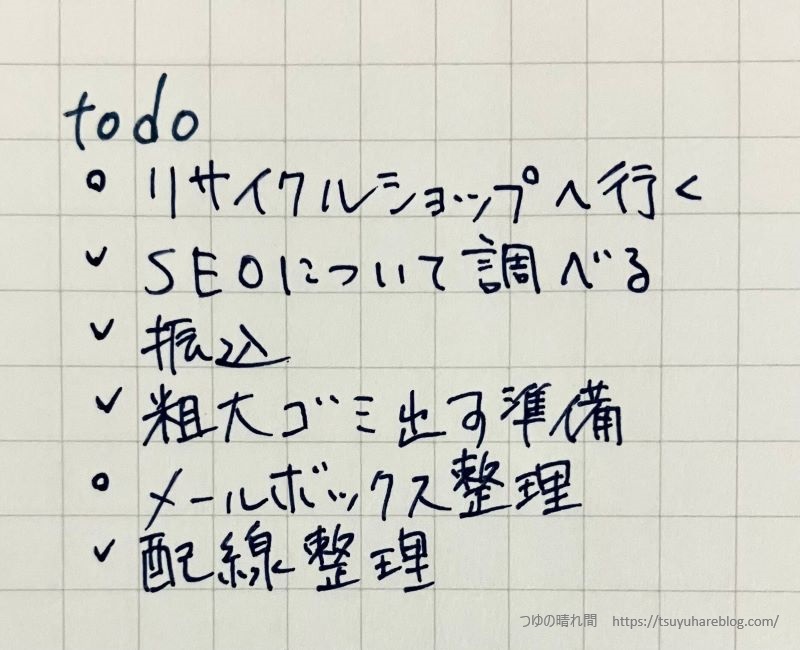 todo
○ リサイクルショップへ行く
✓ SEOについて調べる
✓ 振込
✓ 粗大ゴミ出す準備
○ メールボックス整理
✓ 配線整理
つゆの晴れ間 https://tsuyuhareblog.com/